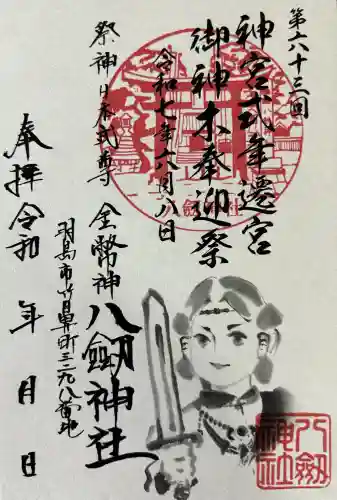 第六十三回
神宮式年遷宮
御神木奉迎祭
令和七年六月八日
祭神 日本武尊 金幣神
八劔神社
羽島市竹鼻町三二九八番地
奉拝 令和 年 月 日
八劔神社